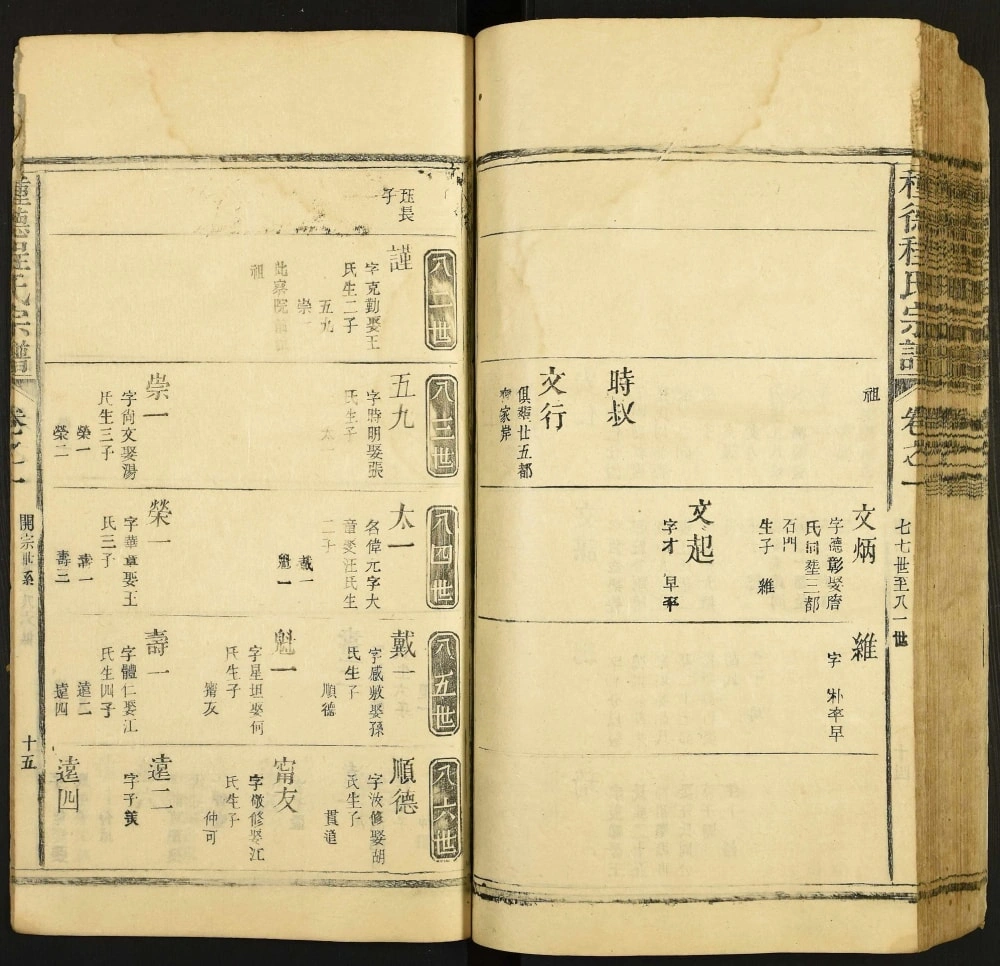 種德程氏宗譜
卷之一
七七世至八一世
祖
文炳
字德彰娶詹
氏
三都
石門
生子 維
維
字 朴卒早
文起
字才 早卒
時叔
文行
俱遷廿五都
家岸
珏長
子
八二世
謹
字克勤娶王
氏生二子
五九
崇一
此察院
祖
八三世
五九
字時明娶張
氏生子
太一
崇一
字尚文娶湯
氏生三子
榮一
榮二
八四世
太一
名偉元字大
章娶汪氏生
二子
戴一
魁一
榮一
字華章娶王
氏三子
壽一
壽三
八五世
戴一
字感敷娶孫
氏生子
順德
魁一
字星垣娶何
氏生子
甯友
壽一
字體仁娶江
氏生四子
遠二
遠四
八六世
順德
字汝修娶胡
氏生子
貫道
甯友
字儆修娶江
氏生子
仲可
遠二
字子美
遠四
種德程氏宗譜
卷之一
開宗世系
十五